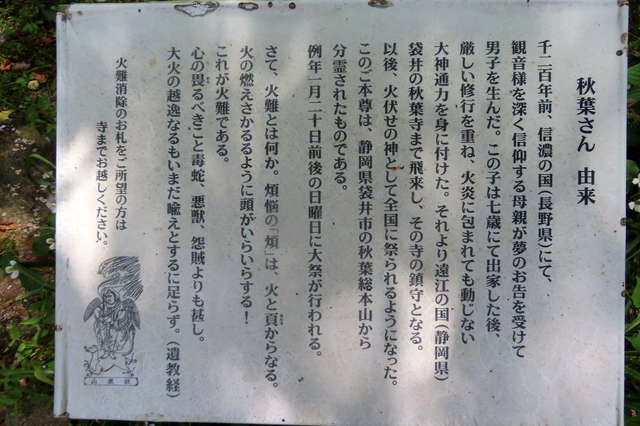 秋葉さん 由来
千二百年前、信濃の国(長野県)にて、
観音様を深く信仰する母親が夢のお告を受けて
男子を生んだ。この子は七歳にて出家した後、
厳しい修行を重ね、火炎に包まれても動じない
大神通力を身に付けた。それより遠江の国(静岡県)
袋井の秋葉寺まで飛来し、その寺の鎮守となる。
以後、火伏せの神として全国に祭られるようになった。
このご本尊は、静岡県袋井市の秋葉総本山から
分霊されたものである。
例年一月二十日前後の日曜日に大祭が行われる。
さて、火難とは何か。煩悩の「煩」は、火と頁からなる。
火の燃えさかるように頭がいらいらする!
これが火難である。
心の畏るべきこと毒蛇、悪獣、怨賊よりも甚し。
大火の越逸なるもいまだ喩えとするに足らず。(遺教経)
火難消除のお札をご所望の方は
寺までお越しください。